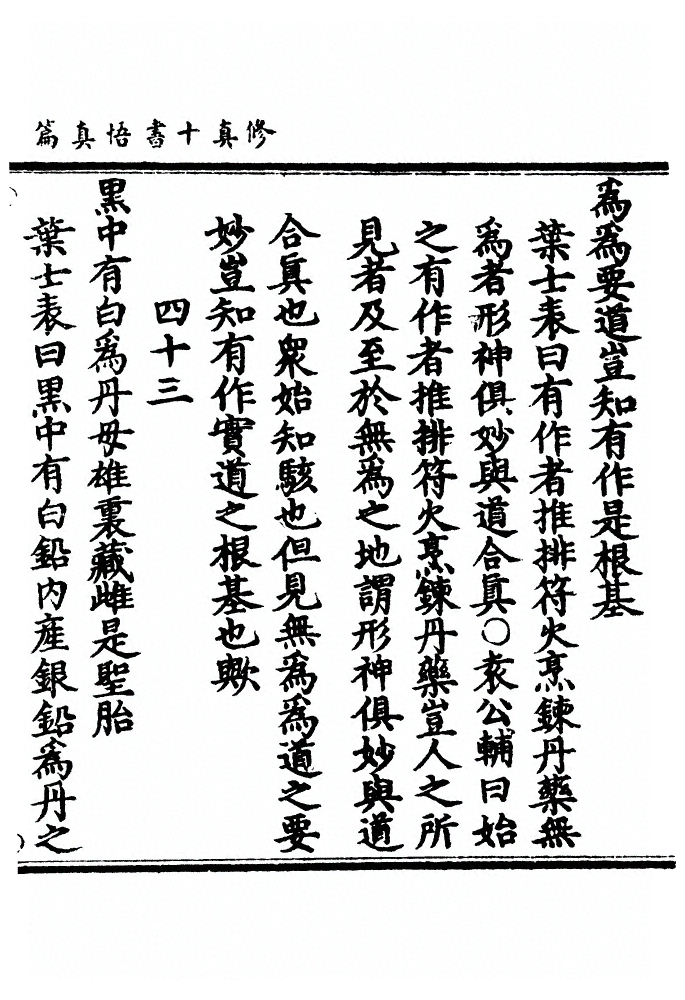 修真十書悟真篇
爲爲要道豈知有作是根基
葉士表曰有作者推排符火烹鍊丹藥無
爲者形神俱妙與道合眞○袁公輔曰始
之有作者推排符火烹鍊丹藥豈人之所
見者及至於無爲之地謂形神俱妙與道
合眞也衆始知駭也但見無爲爲道之要
妙豈知有作實道之根基也歟
四十三
黑中有白爲丹母雄裏藏雌是聖胎
葉士表曰黑中有白鉛內產銀鉛爲丹之